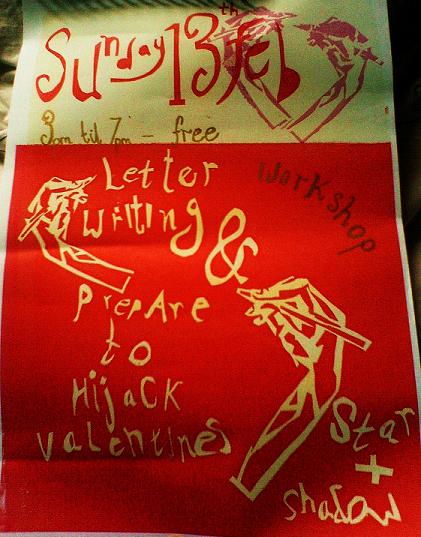 Sunday 13th Feb
3pm til 7pm - free
Workshop
Letter
Writing &
PrepAre
to
HijaCK
valentines
Star
+
shadow